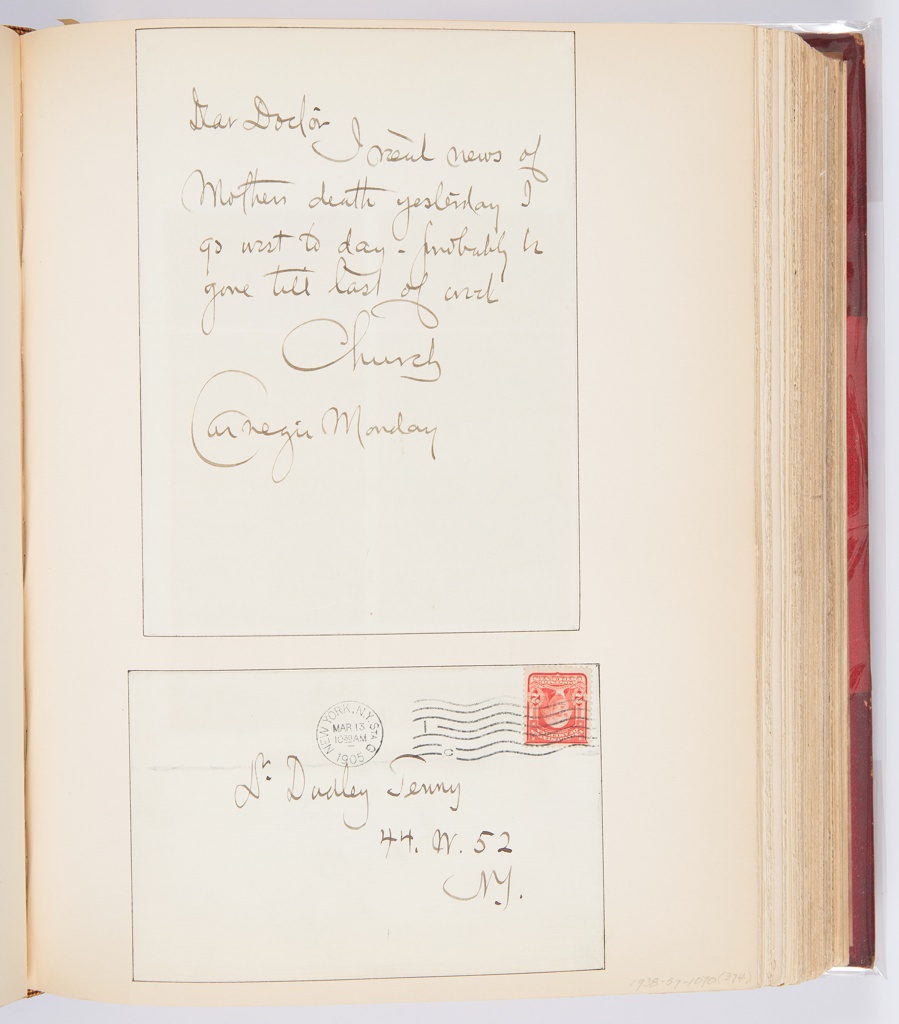 Dear Doctor
I recd news of
Mothers death yesterday I
go west to day - probably be
gone till last of week
Church
Carnegie Monday
NEW YORK, N.Y. STA. G
MAR 13
1030 AM
1905
1
C
Dr Dudley Tenny
44. W. 52
N.Y.